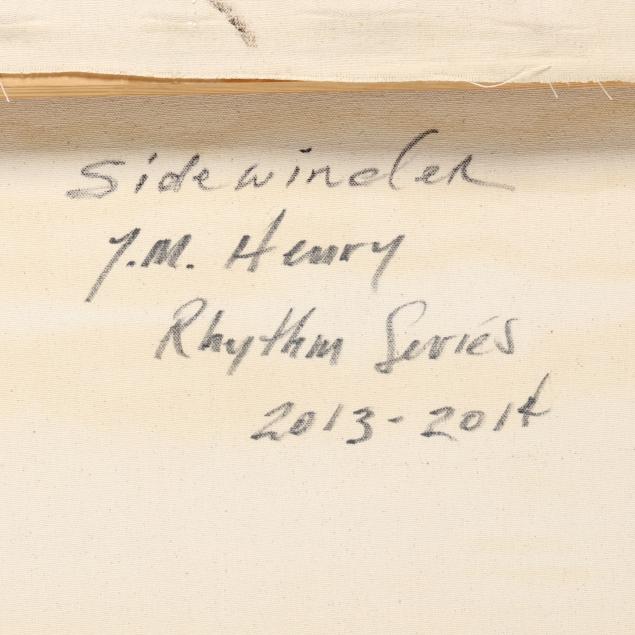 Sidewinder
J.M. Henry
Rhythm Series
2013-2014